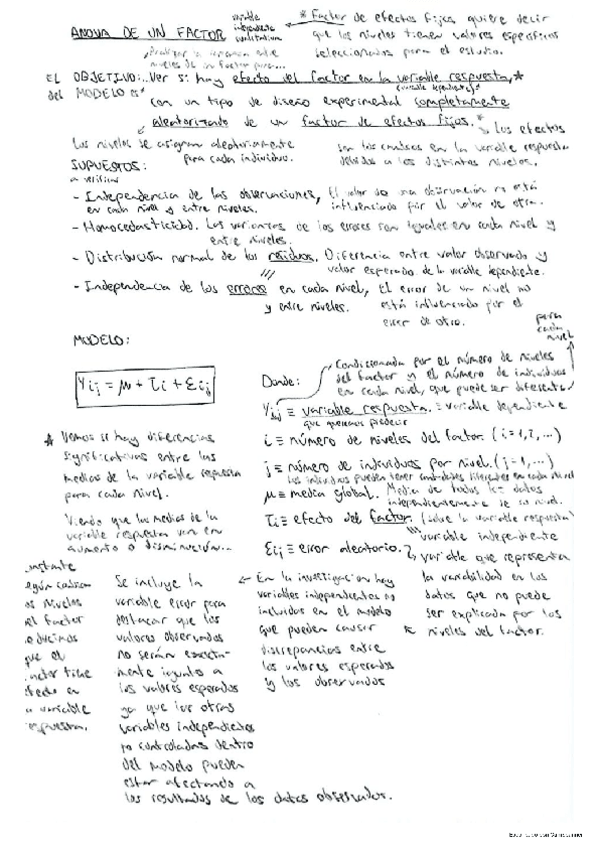 ANOVA DE UN FACTOR
variable
independiente
cualitativa
* Factor de efectos fijos, quiere decir
que los niveles tienen valores específicos
seleccionados para el estudio.
niveles de un factor para...
EL OBJETIVO: Ver si hay efecto del factor en la variable respuesta, *
del MODELO es
(variable dependiente)
con un tipo de diseño experimental completamente
aleatorizado de un factor de efectos fijos. *
Los efectos
Los niveles se asignan aleatoriamente
para cada individuo.
son los cambios en la variable respuesta
debidos a los distintos niveles.
SUPUESTOS:
a verificar
- Independencia de las observaciones, El valor de una observación no está
en cada nivel y entre niveles. influenciado por el valor de otra.
- Homocedasticidad. Las varianzas de los errores son iguales en cada nivel y
entre niveles.
- Distribución normal de los residuos. Diferencia entre valor observado y
valor esperado de la variable dependiente.
- Independencia de los errores en cada nivel, El error de un nivel no
y entre niveles. está influenciado por el
error de otro.
para
cada
nivel
MODELO:
Condicionada por el número de niveles
del factor y el número de individuos
en cada nivel, que puede ser diferente
Yij = μ + τi + εij
Donde:
Yij ≡ variable respuesta. ≡ variable dependiente
que queremos predecir
i ≡ número de niveles del factor. (i = 1, 2, ...)
j ≡ número de individuos por nivel. (j = 1, ...)
Los individuos pueden tener cantidades diferentes en cada nivel
μ ≡ media global. Media de todos los datos
independientemente de su nivel.
τi ≡ efecto del factor. (sobre la variable respuesta)
variable independiente
εij ≡ error aleatorio.
variable que representa
la variabilidad en los
datos que no puede
ser explicada por los
niveles del factor.
* Vemos si hay diferencias
significativas entre las
medias de la variable respuesta
para cada nivel.
Viendo que las medias de la
variable respuesta van en
aumento o disminución...
...nstante
según cambian
os niveles
el factor
educimos
que el
actor tiene
efecto en
a variable
espuesta.
Se incluye la
variable error para
destacar que los
valores observados
no serán exacta-
mente iguales a
los valores esperados
ya que las otras
variables independientes
no controladas dentro
del modelo pueden
estar afectando a
los resultados de los datos observados.
← En la investigación hay
variables independientes no
incluidas en el modelo
que pueden causar
discrepancias entre
los valores esperados
y los observados